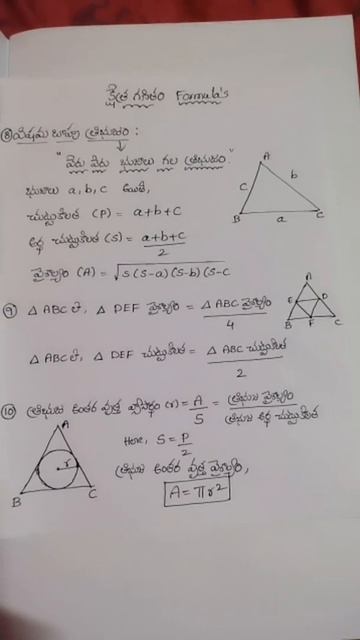 క్షేత్ర గణితం Formula's
⑧ విషమ బాహు త్రిభుజం :
"వేరు వేరు భుజాలు గల త్రిభుజం"
భుజాలు a, b, c అయితే,
చుట్టుకొలత (P) = a+b+c
అర్ధ చుట్టుకొలత (S) = a+b+c
2
వైశాల్యం (A) = √S(S-a)(S-b)(S-c
A
c
b
B
a
C
⑨ △ ABC లో, △ DEF వైశాల్యం = △ ABC వైశాల్యం
4
A
E
D
B
F
C
△ ABC లో, △ DEF చుట్టుకొలత = △ ABC చుట్టుకొలత
2
⑩ త్రిభుజ అంతర వృత్త వ్యాసార్ధం (r) = A/S = త్రిభుజ వైశాల్యం
త్రిభుజ అర్ధ చుట్టుకొలత
Here, S = P/2
త్రిభుజ అంతర వృత్త వైశాల్యం,
A = πr²
A
r
B
C